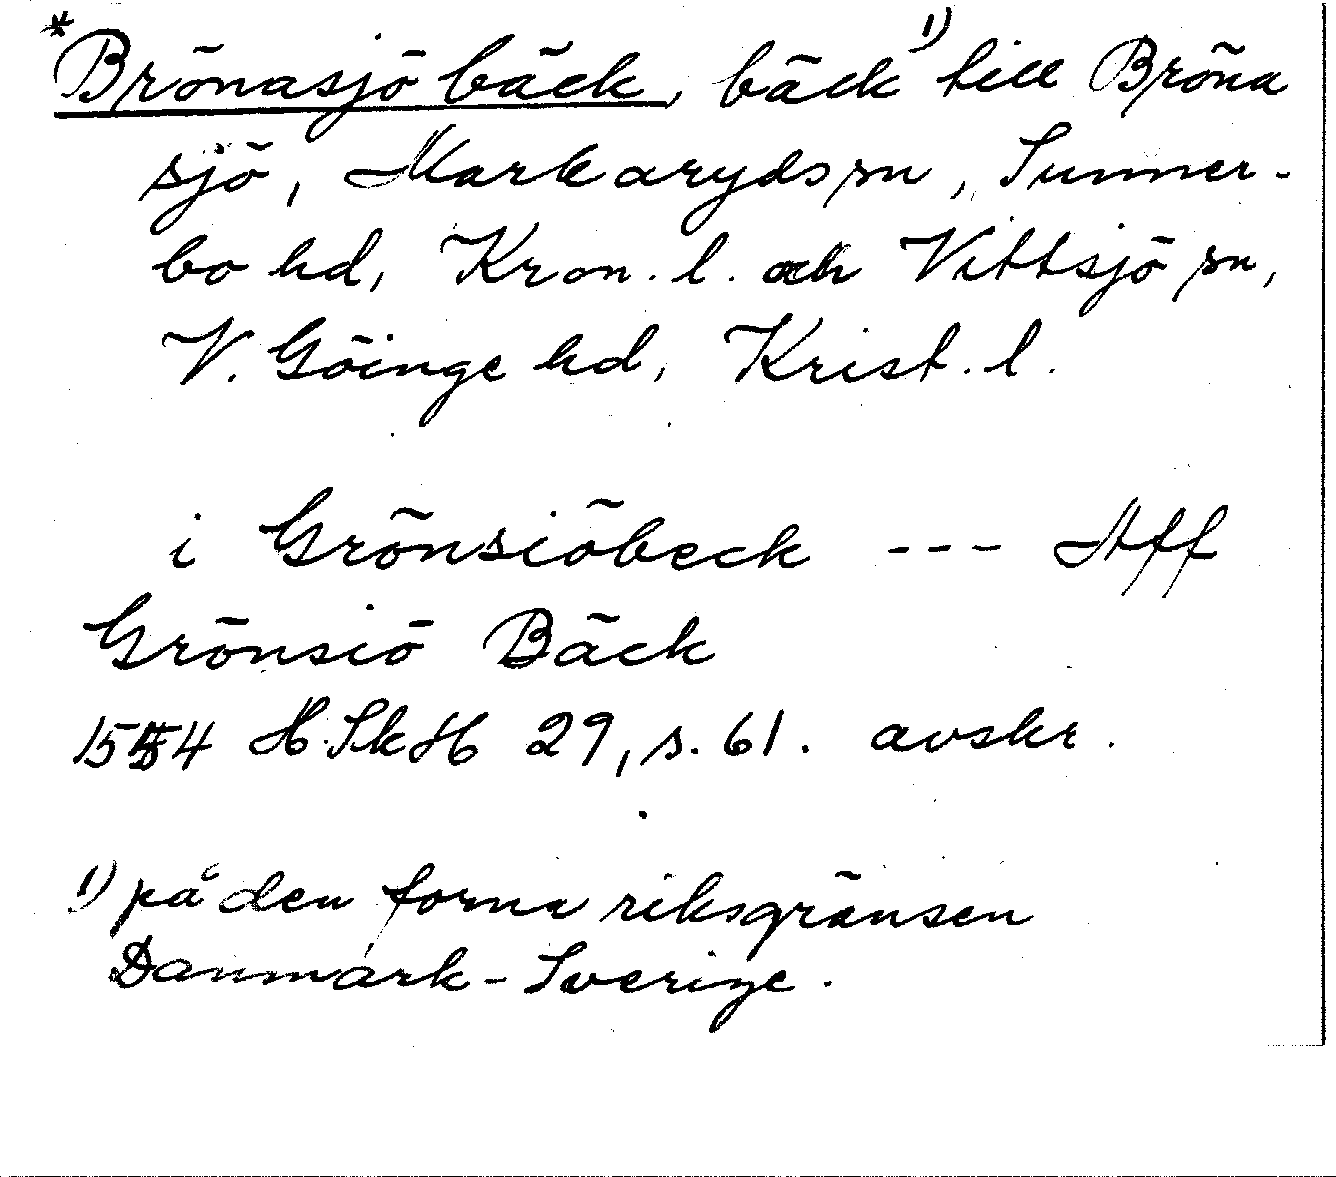 *Brönasjöbäck, bäck ¹⁾ till Bröna
sjö, Markaryds sn, Sunner-
bo hd, Kron. l. och Vittsjö sn,
V. Göinge hd, Krist. l.
i Grönsiöbeck --- Aff
Grönsiö Bäck
1554 H.SkH 29, s. 61. avskr.
1) på den forna riksgränsen
Danmark-Sverige.